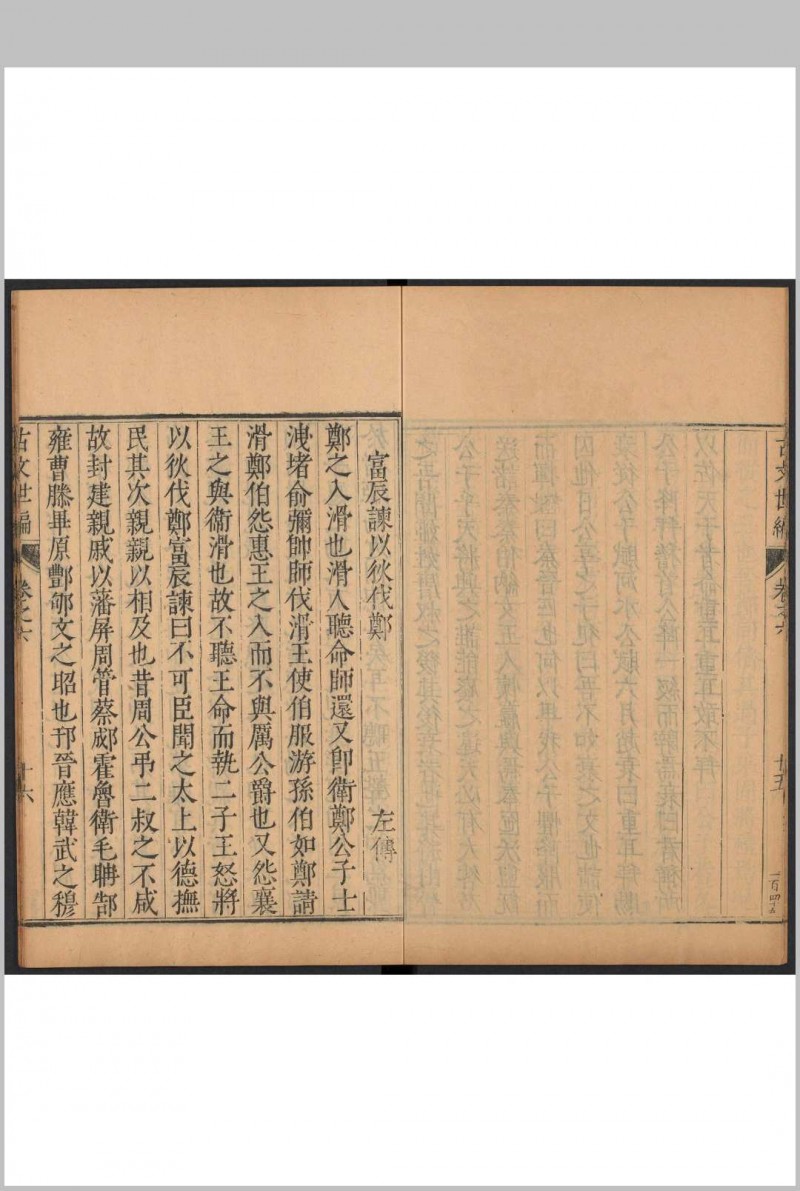 古文世編 卷之六 廿五
富辰諫以狄伐鄭 左傳
鄭之入滑也滑人聽命師還又卽衛鄭公子士
洩堵俞彌帥師伐滑王使伯服游孫伯如鄭請
滑鄭伯怨惠王之入而不與厲公爵也又怨襄
王之與衞滑也故不聽王命而執二子王怒將
以狄伐鄭富辰諫曰不可臣聞之太上以德撫
民其次親親以相及也昔周公弔二叔之不咸
故封建親戚以藩屏周管蔡郕霍魯衛毛聃郜
雍曹滕畢原酆郇文之昭也邘晉應韓武之穆
古文世編 卷之六